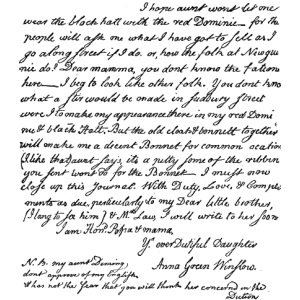 I hope aunt wont let me
wear the black hatt with the red Dominie - for the
people will ask me what I have got to sell as I
go along street if I do. or, how the folk at Newgui
nie do? Dear mamma, you dont know the fation
here - I beg to look like other folk. You dont kno
what a stir would be made in sudbury street
were I to make my appearance there in my red Domi
nie & black Hatt. But the old cloak & bonnett together
will make me a decent Bonnet for common ocation
(I like that) aunt says, its a pitty some of the ribbins
you sent wont do for the Bonnet - I must now
close up this Journal. With Duty, Love, & Comple
ments as due, perticularly to my Dear little brother,
(I long to see him) & Mrs Law, I will write to her soon
I am Hond. Papa & mama,
Yr ever Dutiful Daughter
Anna Green Winslow.
N. B. my aunt Deming,
dont approve of my English.
& has not the fear that you will think her concerned in the
Diction